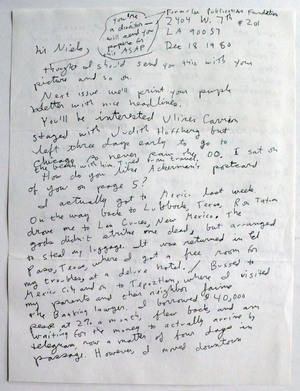 You're
a director —
will send you
papers for
this ASAP
Formular Publication Foundation
2404 W. 7th #201
LA 90057
Dec 18 1980
Hi Niels,
thought I should send you this with your
picture and so on.
Next issue we'll print your people
better with nice headlines.
You'll be interested Ulises Carrión
stayed with Judith Hoffberg but
left three days early to go to
Chicago so never saw the OO. I sat on
the bench with him tired from travel.
How do you like Ackerman's postcard
of you on page 5?
I actually got to Mexico last week.
On the way back to Lubbock, Texas, Roi Tatian
drove me to Las Cruces, New Mexico. The
gods didn't strike me dead, but arranged
to steal my luggage. It was returned in El
Paso, Texas, where I got a free room for
my troubles at a deluxe hotel. Bussed to
Mexico City and on to Tepoztlan, where I visited
my parents and their neighbor
the Banking lawyer. I borrowed $40,000
pesos at 2% a month, flew back, and am
waiting for the money to actually arrive by
telegram, now a matter of four days in
passage. However, I moved downtown